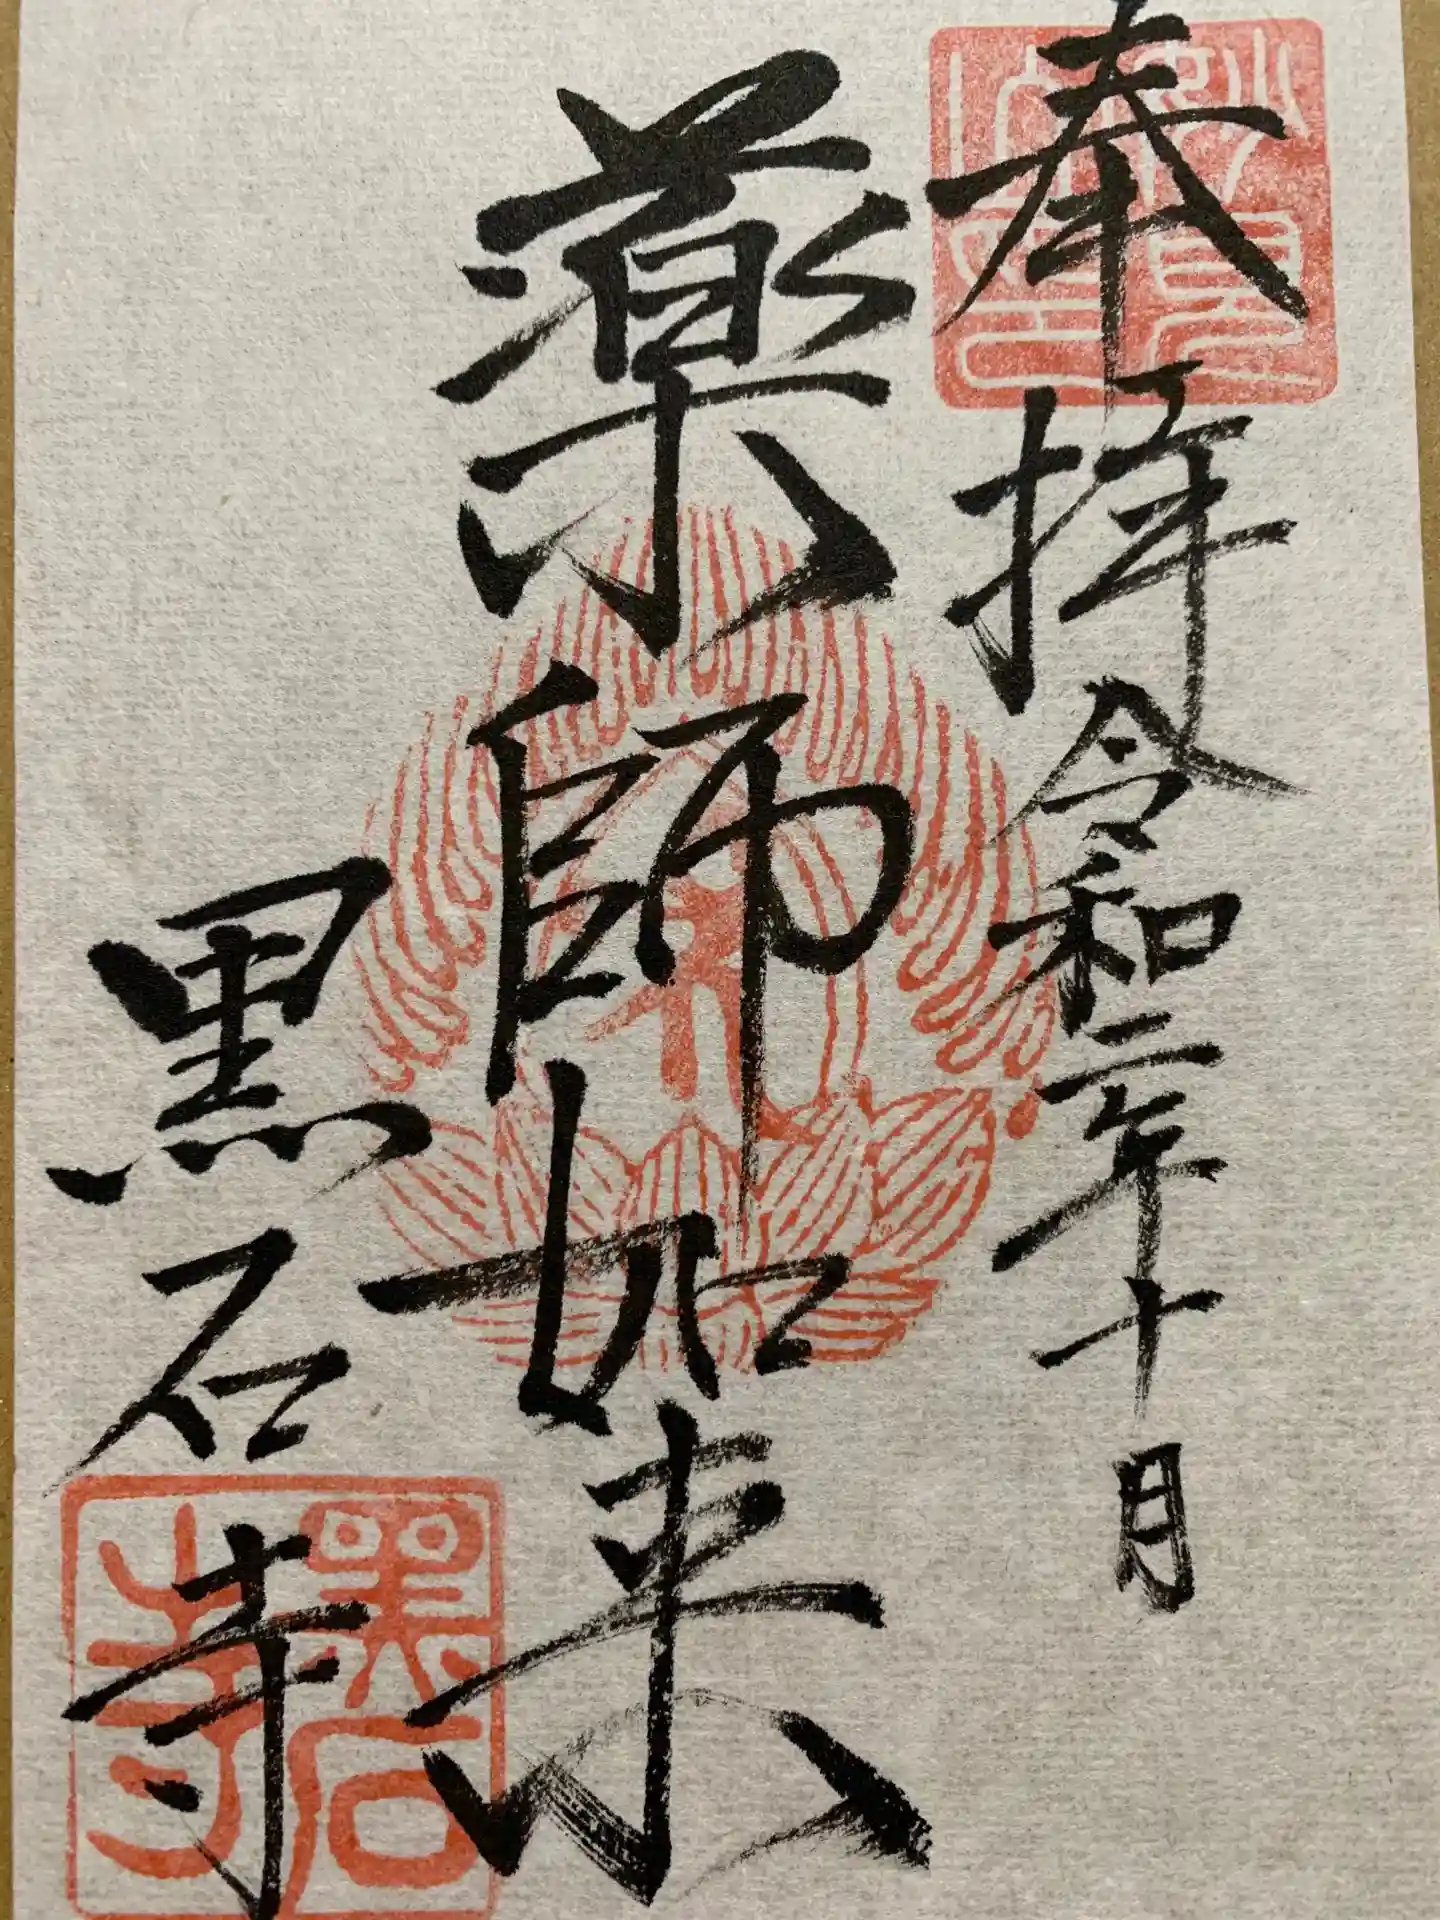 奉拝
令和二年十月
薬師如来
黒石寺
黒石寺